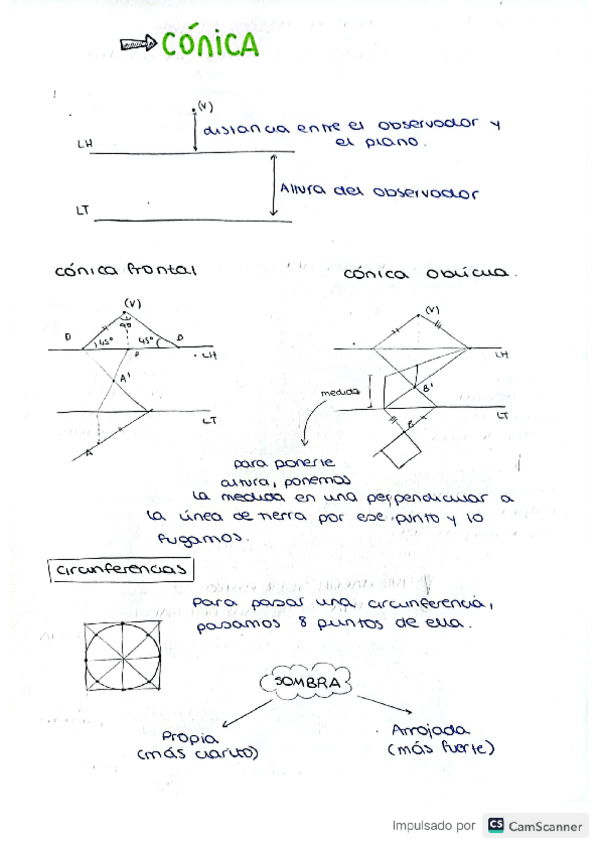 CÓNICA
(V)
distancia entre el observador y
el plano.
LH
Altura del observador
LT
cónica frontal
cónica oblicua.
(V)
90
D 45° 45° D
P
LH
A'
LT
A
(V)
LH
B'
medida
LT
B
para ponerle
altura, ponemos
la medida en una perpendicular a
la línea de tierra por ese punto y lo
fugamos.
circunferencias
Para pasar una circunferencia,
pasamos 8 puntos de ella.
SOMBRA
Propia
(más clarito)
Arrojada
(más fuerte)
Impulsado por CS CamScanner